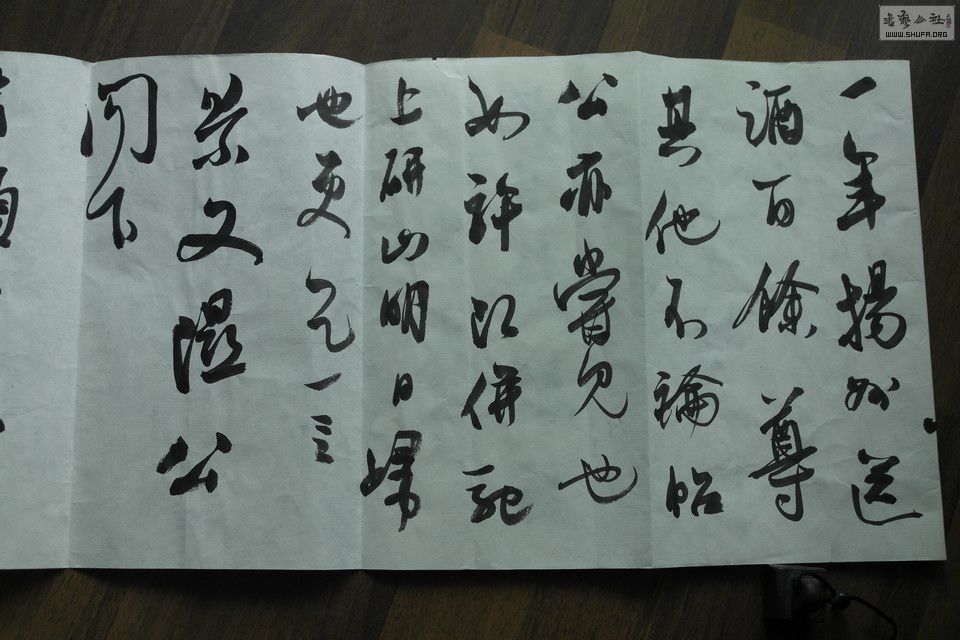 一年揚州送
酒百餘尊
其他不論帖
公亦嘗見也
如許即併馳
上研山明日歸
也更乞一言
景文隰公
閤下
書藝公社
WWW.SHUFA.ORG